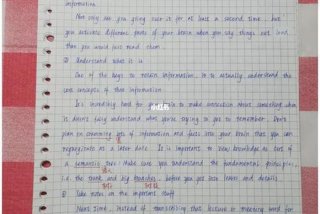 information.
Not only are you going over it for at least a second time, but
you activate different parts of your brain when you say things out loud,
than you would just read them.
② Understand what it is
One of the keys to retain information is to actually understand the
core concepts of that information
It's incredibly hard for your brain to make connection about something when
it doesn't fully understand what you're trying to get to remember. Don't
plan on cramming lots of information and facts into your brain that you can
regurgitate at a later date. It is important to view knowledge as sort of
a semantic tree. Make sure you understand the fundamental principles,
i.e. the trunk and big branches before you get into leaf and details
树干 树枝
③ Take notes on the important stuff.
Next Time, instead of transcribing that lecture or meeting word for